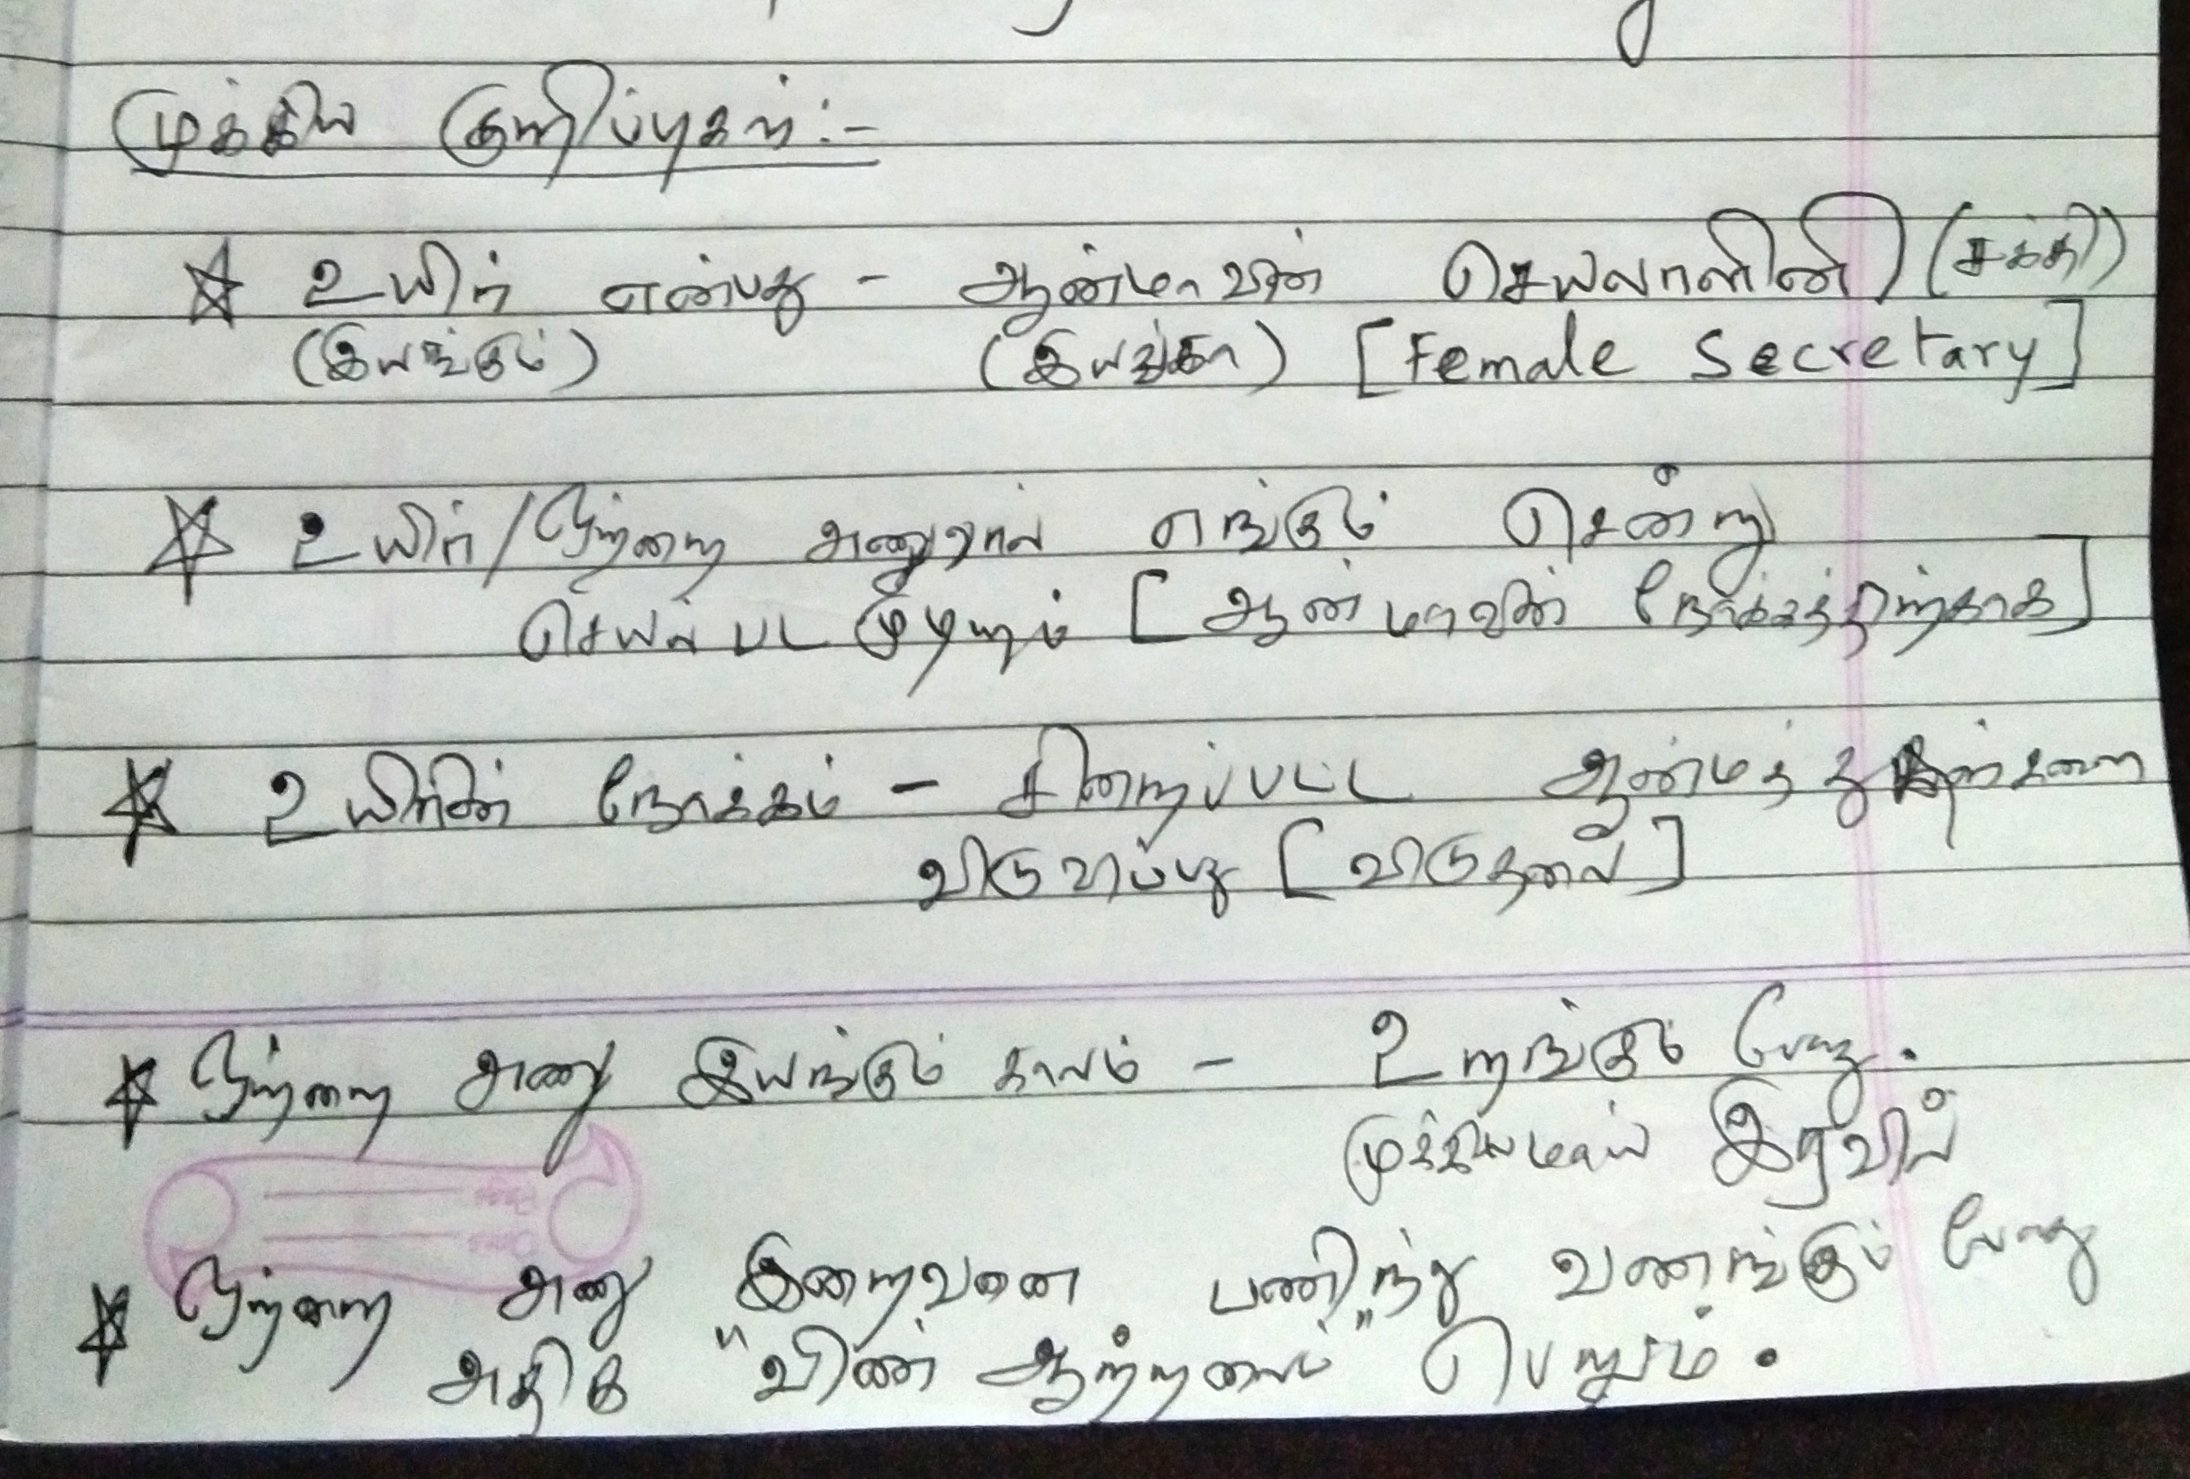 முக்கிய குறிப்புகள்:-
☆ உயிர் என்பது - ஆன்மாவின் செயலாளினி (சக்தி)
(இயங்கும்) (இயங்கா) [Female Secretary]
☆ உயிர்/நெற்றை அணுவால் எங்கும் சென்று
செயல்பட முடியும் [ஆன்மாவின் நோக்கத்திற்காக]
☆ உயிரின் நோக்கம் - சிறைப்பட்ட ஆன்மத் துகள்களை
விடுவிப்பது [விடுதலை]
☆ அணு இயங்கும் காலம் - உறங்கும் போது.
முக்கியமாய் இரவில்
☆ அணு இறைவனை பணிந்து வணங்கும் போது
அதிக "விண் ஆற்றலை" பெறும்.